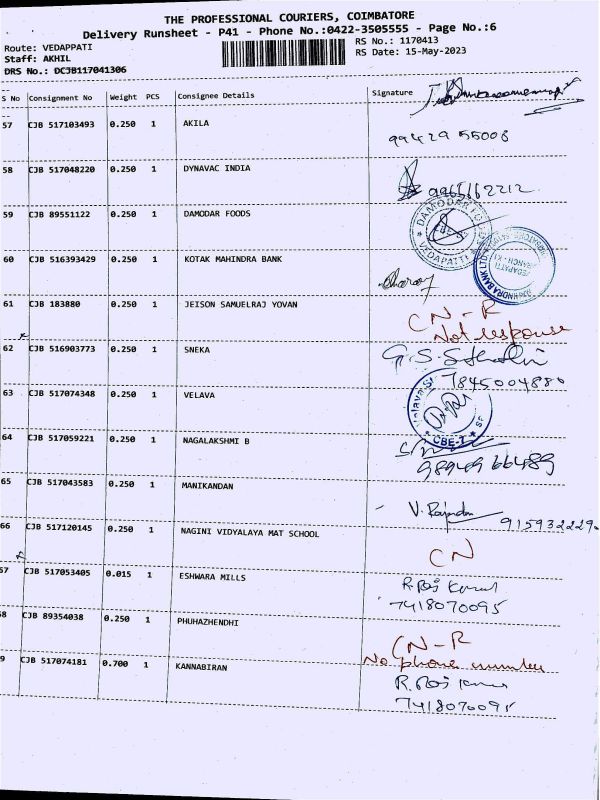 THE PROFESSIONAL COURIERS, COIMBATORE
Delivery Runsheet - P41 - Phone No.:0422-3505555 - Page No.:6
Route: VEDAPPATI
RS No.: 1170413
Staff: AKHIL
RS Date: 15-May-2023
DRS No.: DCJB117041306
S No Consignment No Weight PCS Consignee Details Signature
57 CJB 517103493 0.250 1 AKILA
99429 55008
58 CJB 517048220 0.250 1 DYNAVAC INDIA
9965162212
59 CJB 89551122 0.250 1 DAMODAR FOODS
VEDAPATTI
60 CJB 516393429 0.250 1 KOTAK MAHINDRA BANK
61 CJB 183880 0.250 1 JEISON SAMUELRAJ YOVAN
CN - R
Not response
62 CJB 516903773 0.250 1 SNEKA
7845004880
63 CJB 517074348 0.250 1 VELAVA
CBE-T
64 CJB 517059221 0.250 1 NAGALAKSHMI B
9894966489
65 CJB 517043583 0.250 1 MANIKANDAN
V. Rajendran
915932229
66 CJB 517120145 0.250 1 NAGINI VIDYALAYA MAT SCHOOL
CN
57 CJB 517053405 0.015 1 ESHWARA MILLS
R. Raj Kumar
7418070095
8 CJB 89354038 0.250 1 PHUHAZHENDHI
CN - R
No phone number
9 CJB 517074181 0.700 1 KANNABIRAN
R. Raj Kumar
7418070095